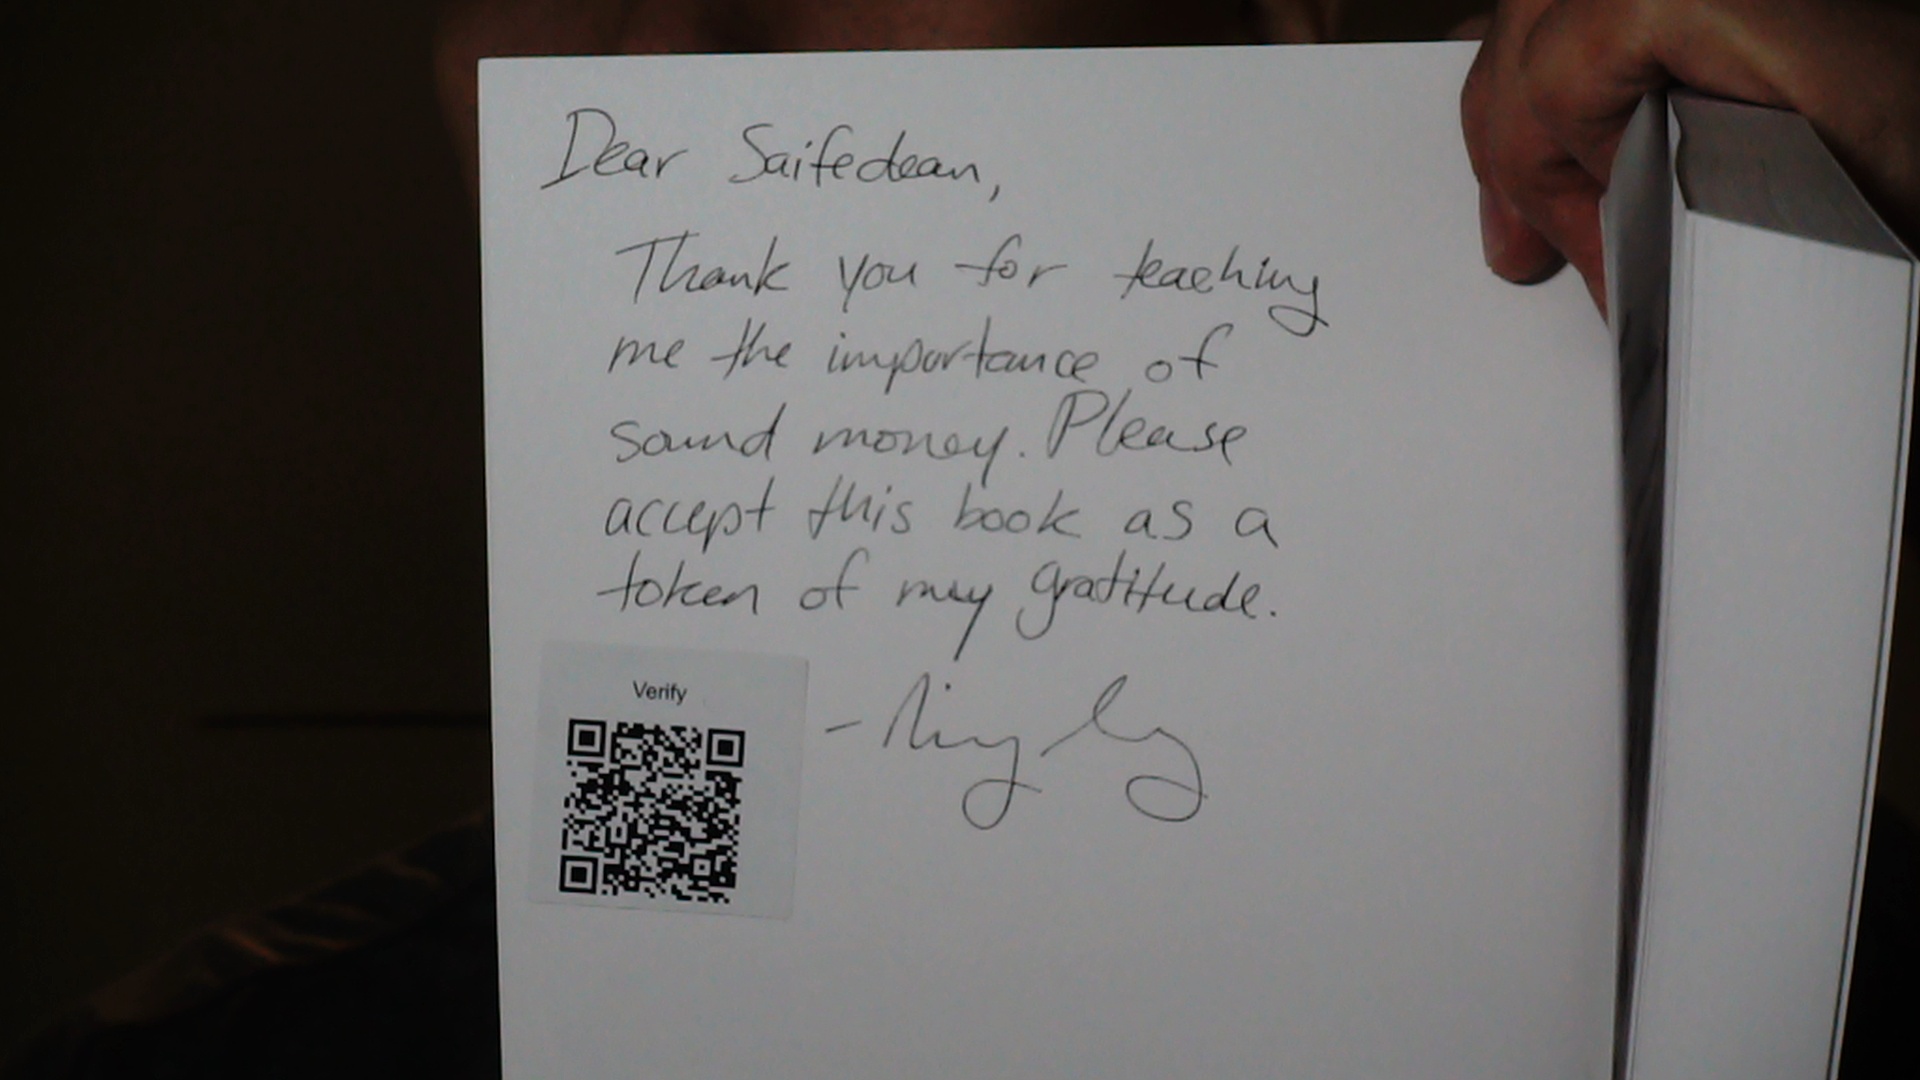 Dear Saifedean,
Thank you for teaching
me the importance of
sound money. Please
accept this book as a
token of my gratitude.
Verify